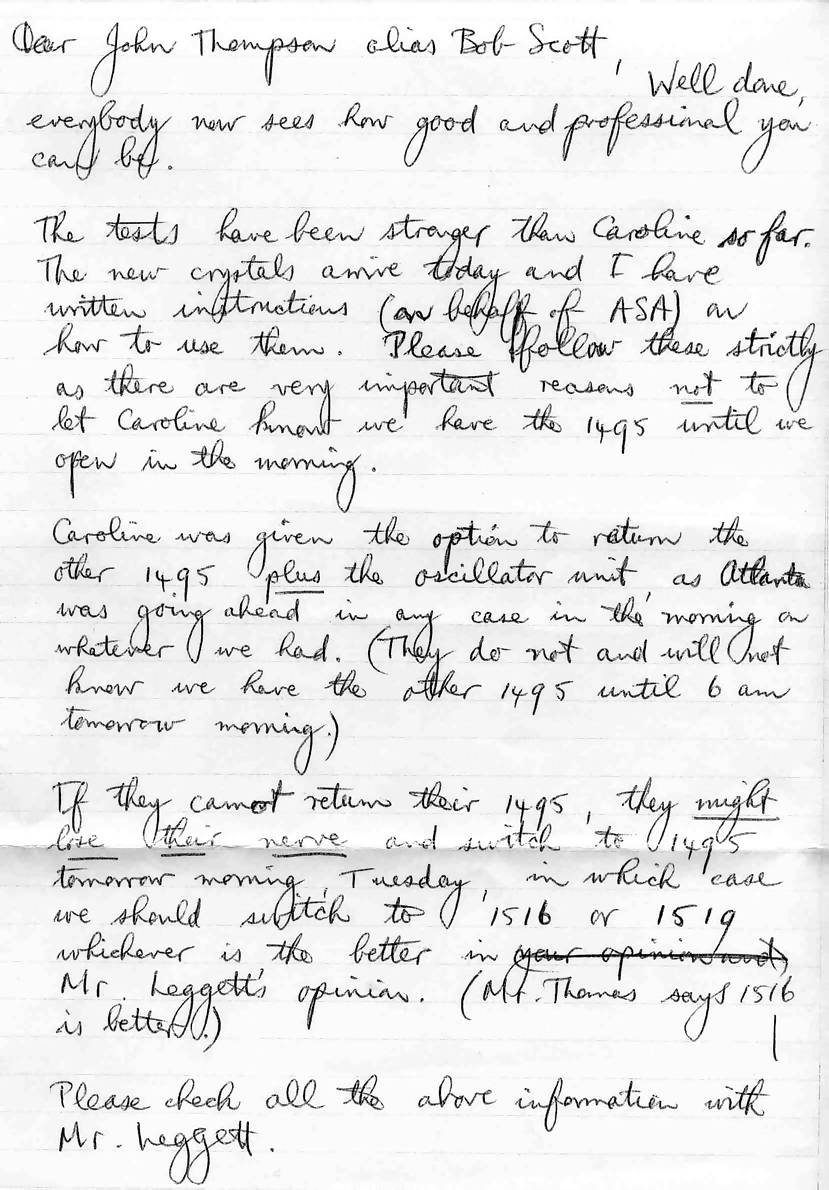 Dear John Thompson alias Bob Scott,
Well done,
everybody now sees how good and professional you
can be.
The tests have been stronger than Caroline so far.
The new crystals arrive today and I have
written instructions (on behalf of ASA) on
how to use them. Please follow these strictly
as there are very important reasons not to
let Caroline know we have the 1495 until we
open in the morning.
Caroline was given the option to return the
other 1495 plus the oscillator unit, as Atlanta
was going ahead in any case in the morning on
whatever we had. (They do not and will not
know we have the other 1495 until 6 am
tomorrow morning.)
If they cannot return their 1495, they might
lose their nerve and switch to 1495
tomorrow morning, Tuesday, in which case
we should switch to 1516 or 1519
whichever is the better in your opinion and
Mr. Leggett's opinion. (Mr. Thomas says 1516
is better.)
Please check all the above information with
Mr. Leggett.